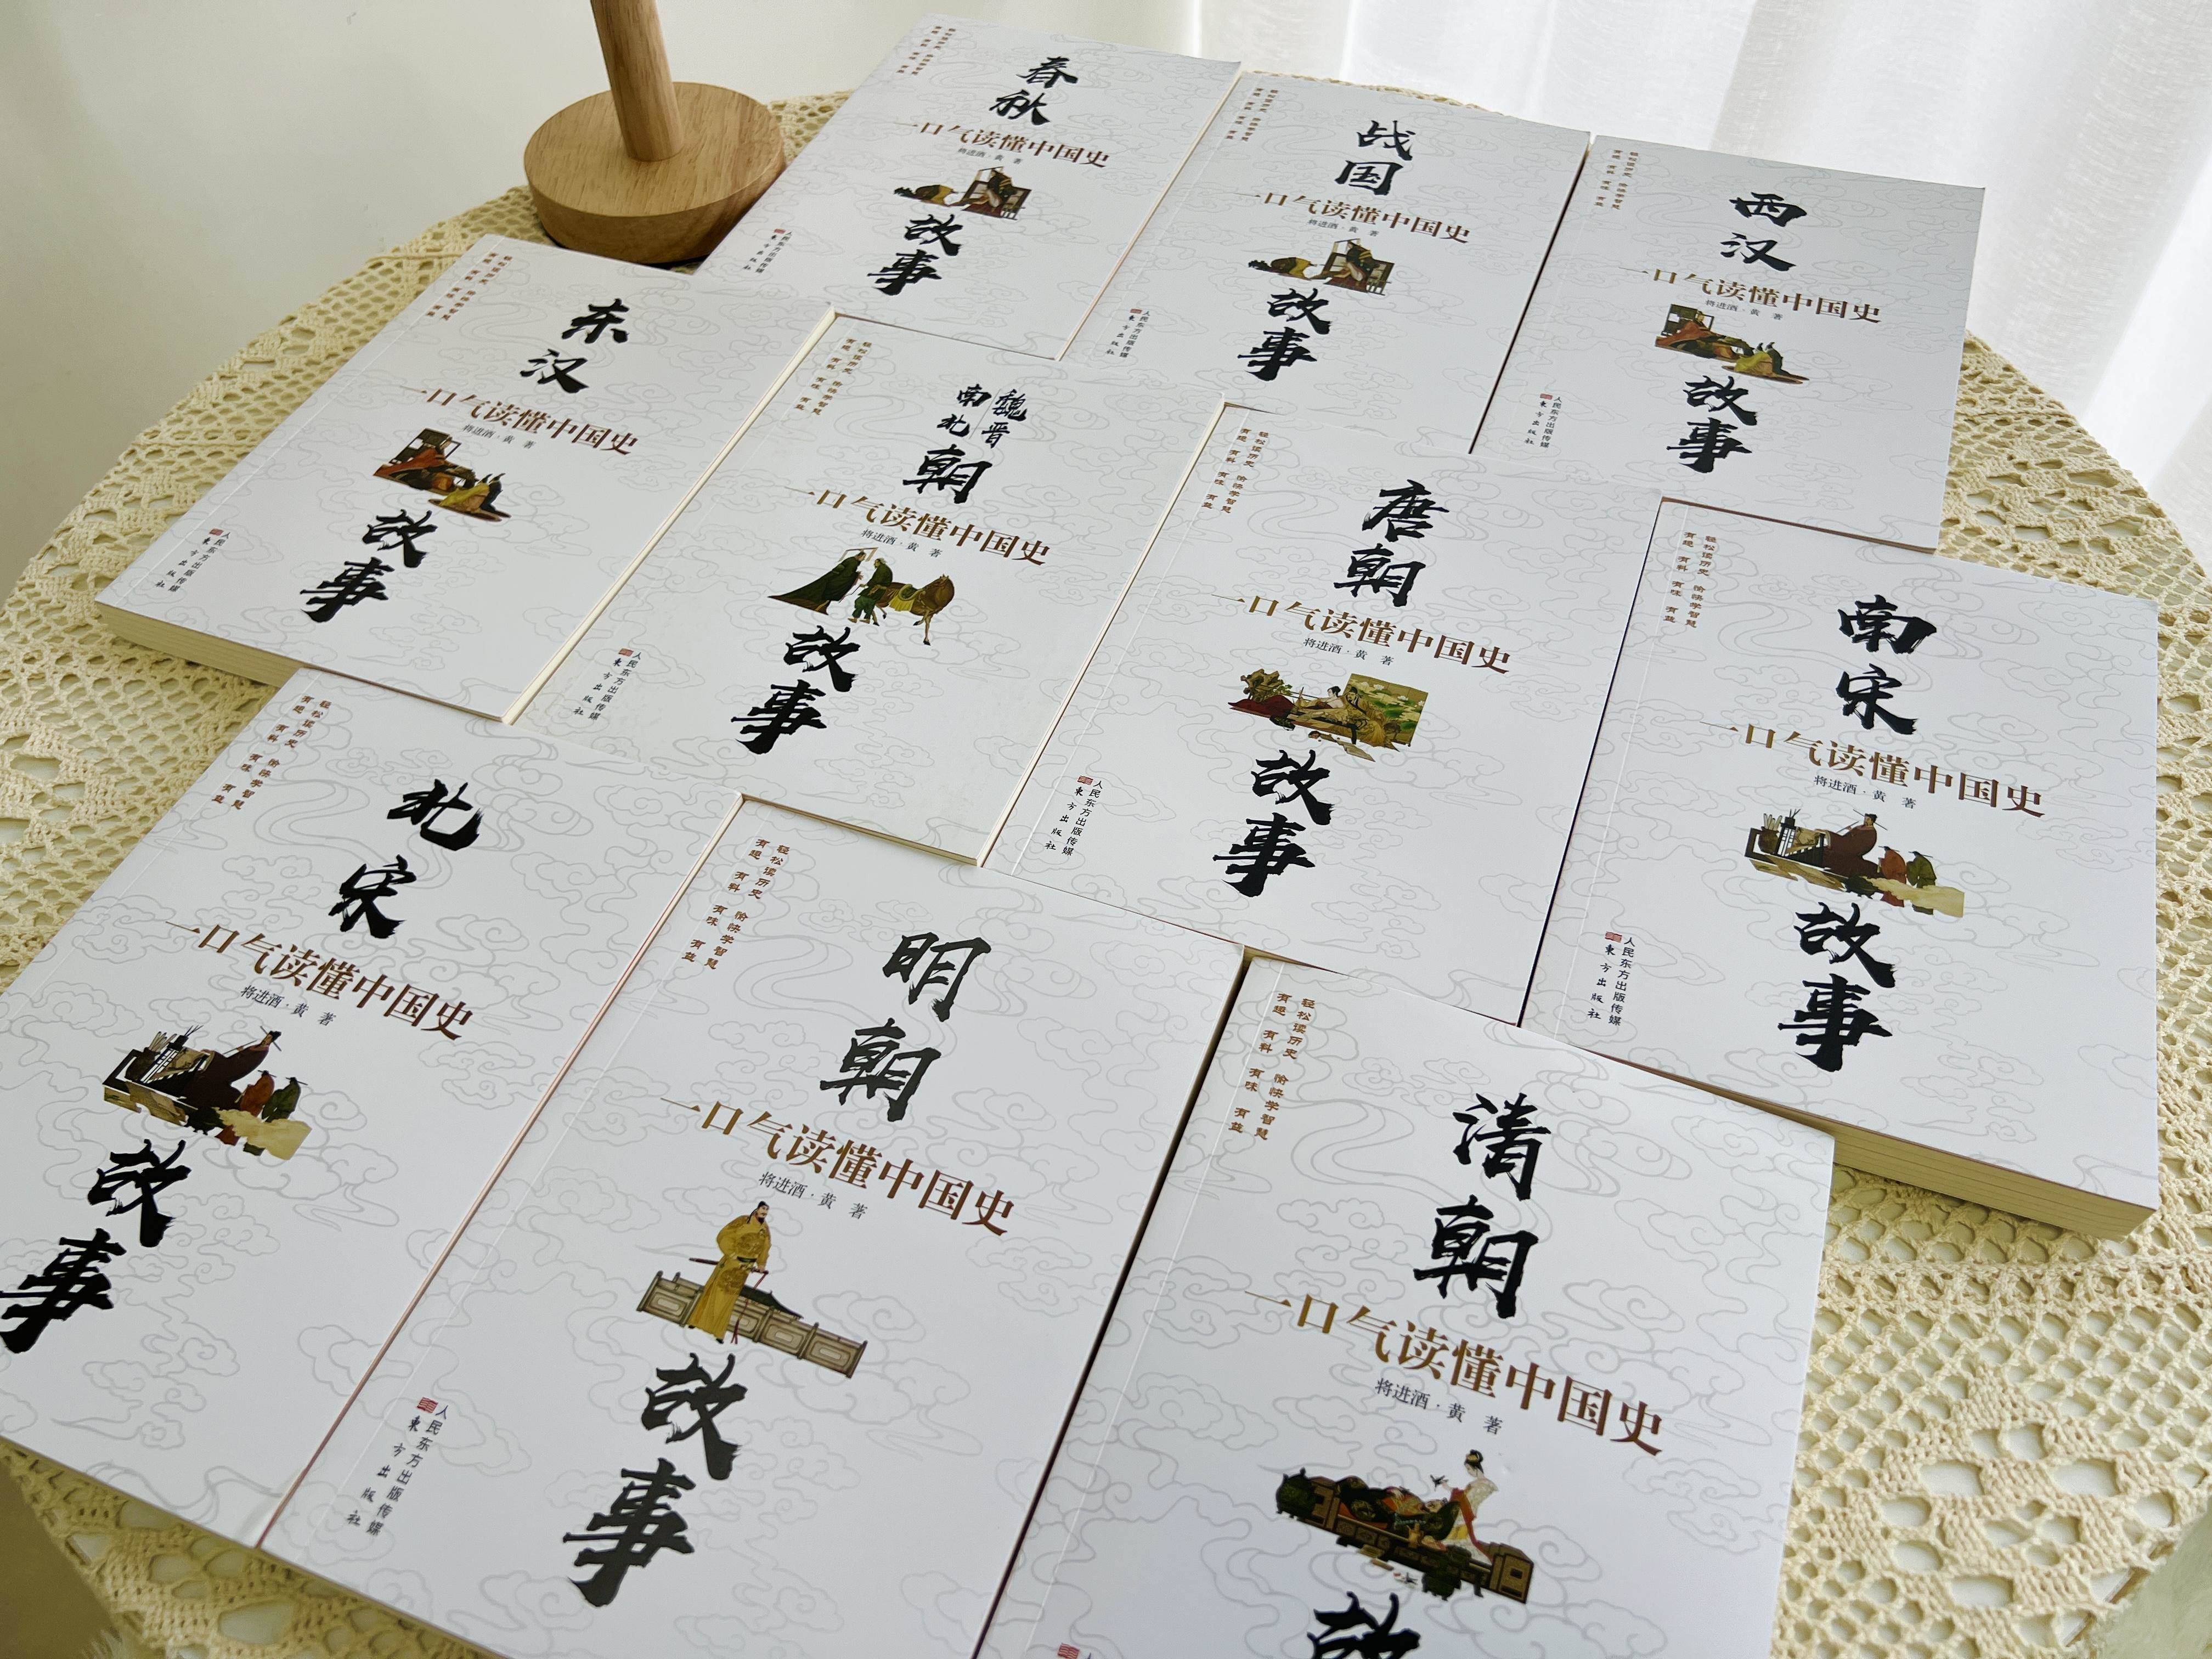 轻松读历史 愉快学智慧
有趣 有料 有味 有益
春秋
一口气读懂中国史
将进酒·黄 著
故事
人民东方出版传媒
东方出版社
轻松读历史 愉快学智慧
有趣 有料 有味 有益
战国
一口气读懂中国史
将进酒·黄 著
故事
人民东方出版传媒
东方出版社
轻松读历史 愉快学智慧
有趣 有料 有味 有益
西汉
一口气读懂中国史
将进酒·黄 著
故事
人民东方出版传媒
东方出版社
轻松读历史 愉快学智慧
有趣 有料 有味 有益
东汉
一口气读懂中国史
将进酒·黄 著
故事
人民东方出版传媒
东方出版社
轻松读历史 愉快学智慧
有趣 有料 有味 有益
魏晋
南北
朝
一口气读懂中国史
将进酒·黄 著
故事
人民东方出版传媒
东方出版社
轻松读历史 愉快学智慧
有趣 有料 有味 有益
唐朝
一口气读懂中国史
将进酒·黄 著
故事
人民东方出版传媒
东方出版社
轻松读历史 愉快学智慧
有趣 有料 有味 有益
南宋
一口气读懂中国史
将进酒·黄 著
故事
人民东方出版传媒
东方出版社
轻松读历史 愉快学智慧
有趣 有料 有味 有益
北宋
一口气读懂中国史
将进酒·黄 著
故事
轻松读历史 愉快学智慧
有趣 有料 有味 有益
明朝
一口气读懂中国史
将进酒·黄 著
故事
人民东方出版传媒
东方出版社
轻松读历史 愉快学智慧
有趣 有料 有味 有益
清朝
一口气读懂中国史
将进酒·黄 著
故